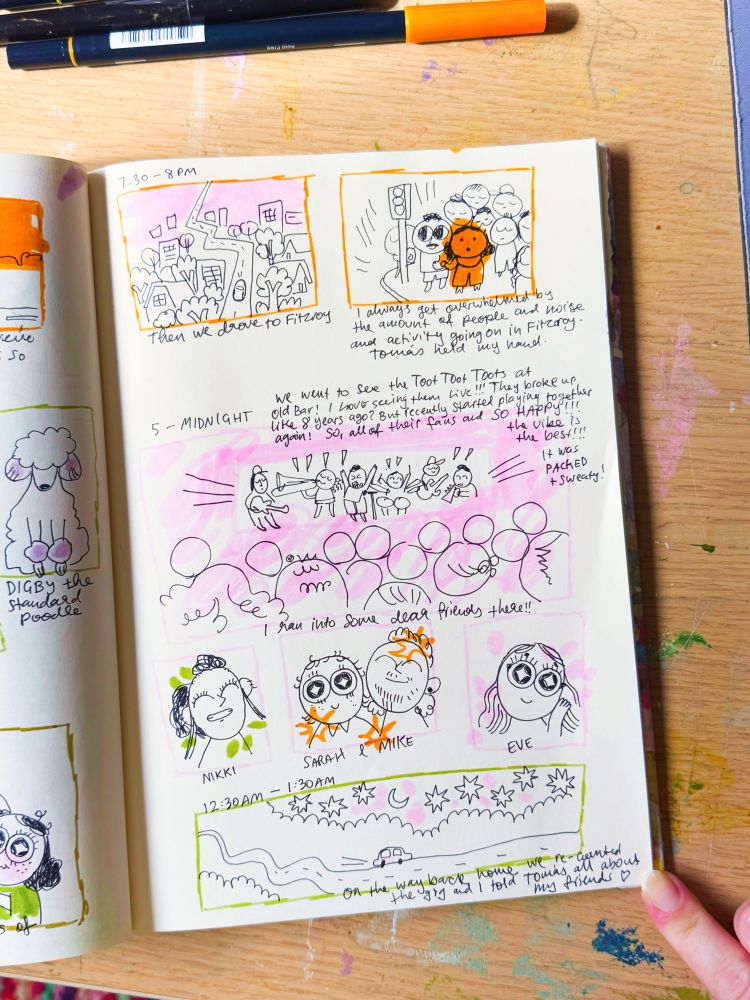 Acid Free
7:30 - 8PM
Then we drove to Fitzroy
I always get overwhelmed by
the amount of people and noise
and activity going on in Fitzroy.
Tomás held my hand.
5 - MIDNIGHT
we went to see the Toot Toot Toots at
Old Bar! I LOVE seeing them Live!!! They broke up
like 8 years ago? But recently started playing together
again! So, all of their fans are SO HAPPY!!!
the vibe is
the best!!!
It was
PACKED
+ sweaty!
I ran into some dear friends there!!
NIKKI
SARAH & MIKE
EVE
12:30AM - 1:30AM
on the way back home we re-counted
the gig and I told Tomás all about
my friends ♡
s so
DIGBY the
standard
poodle
s of